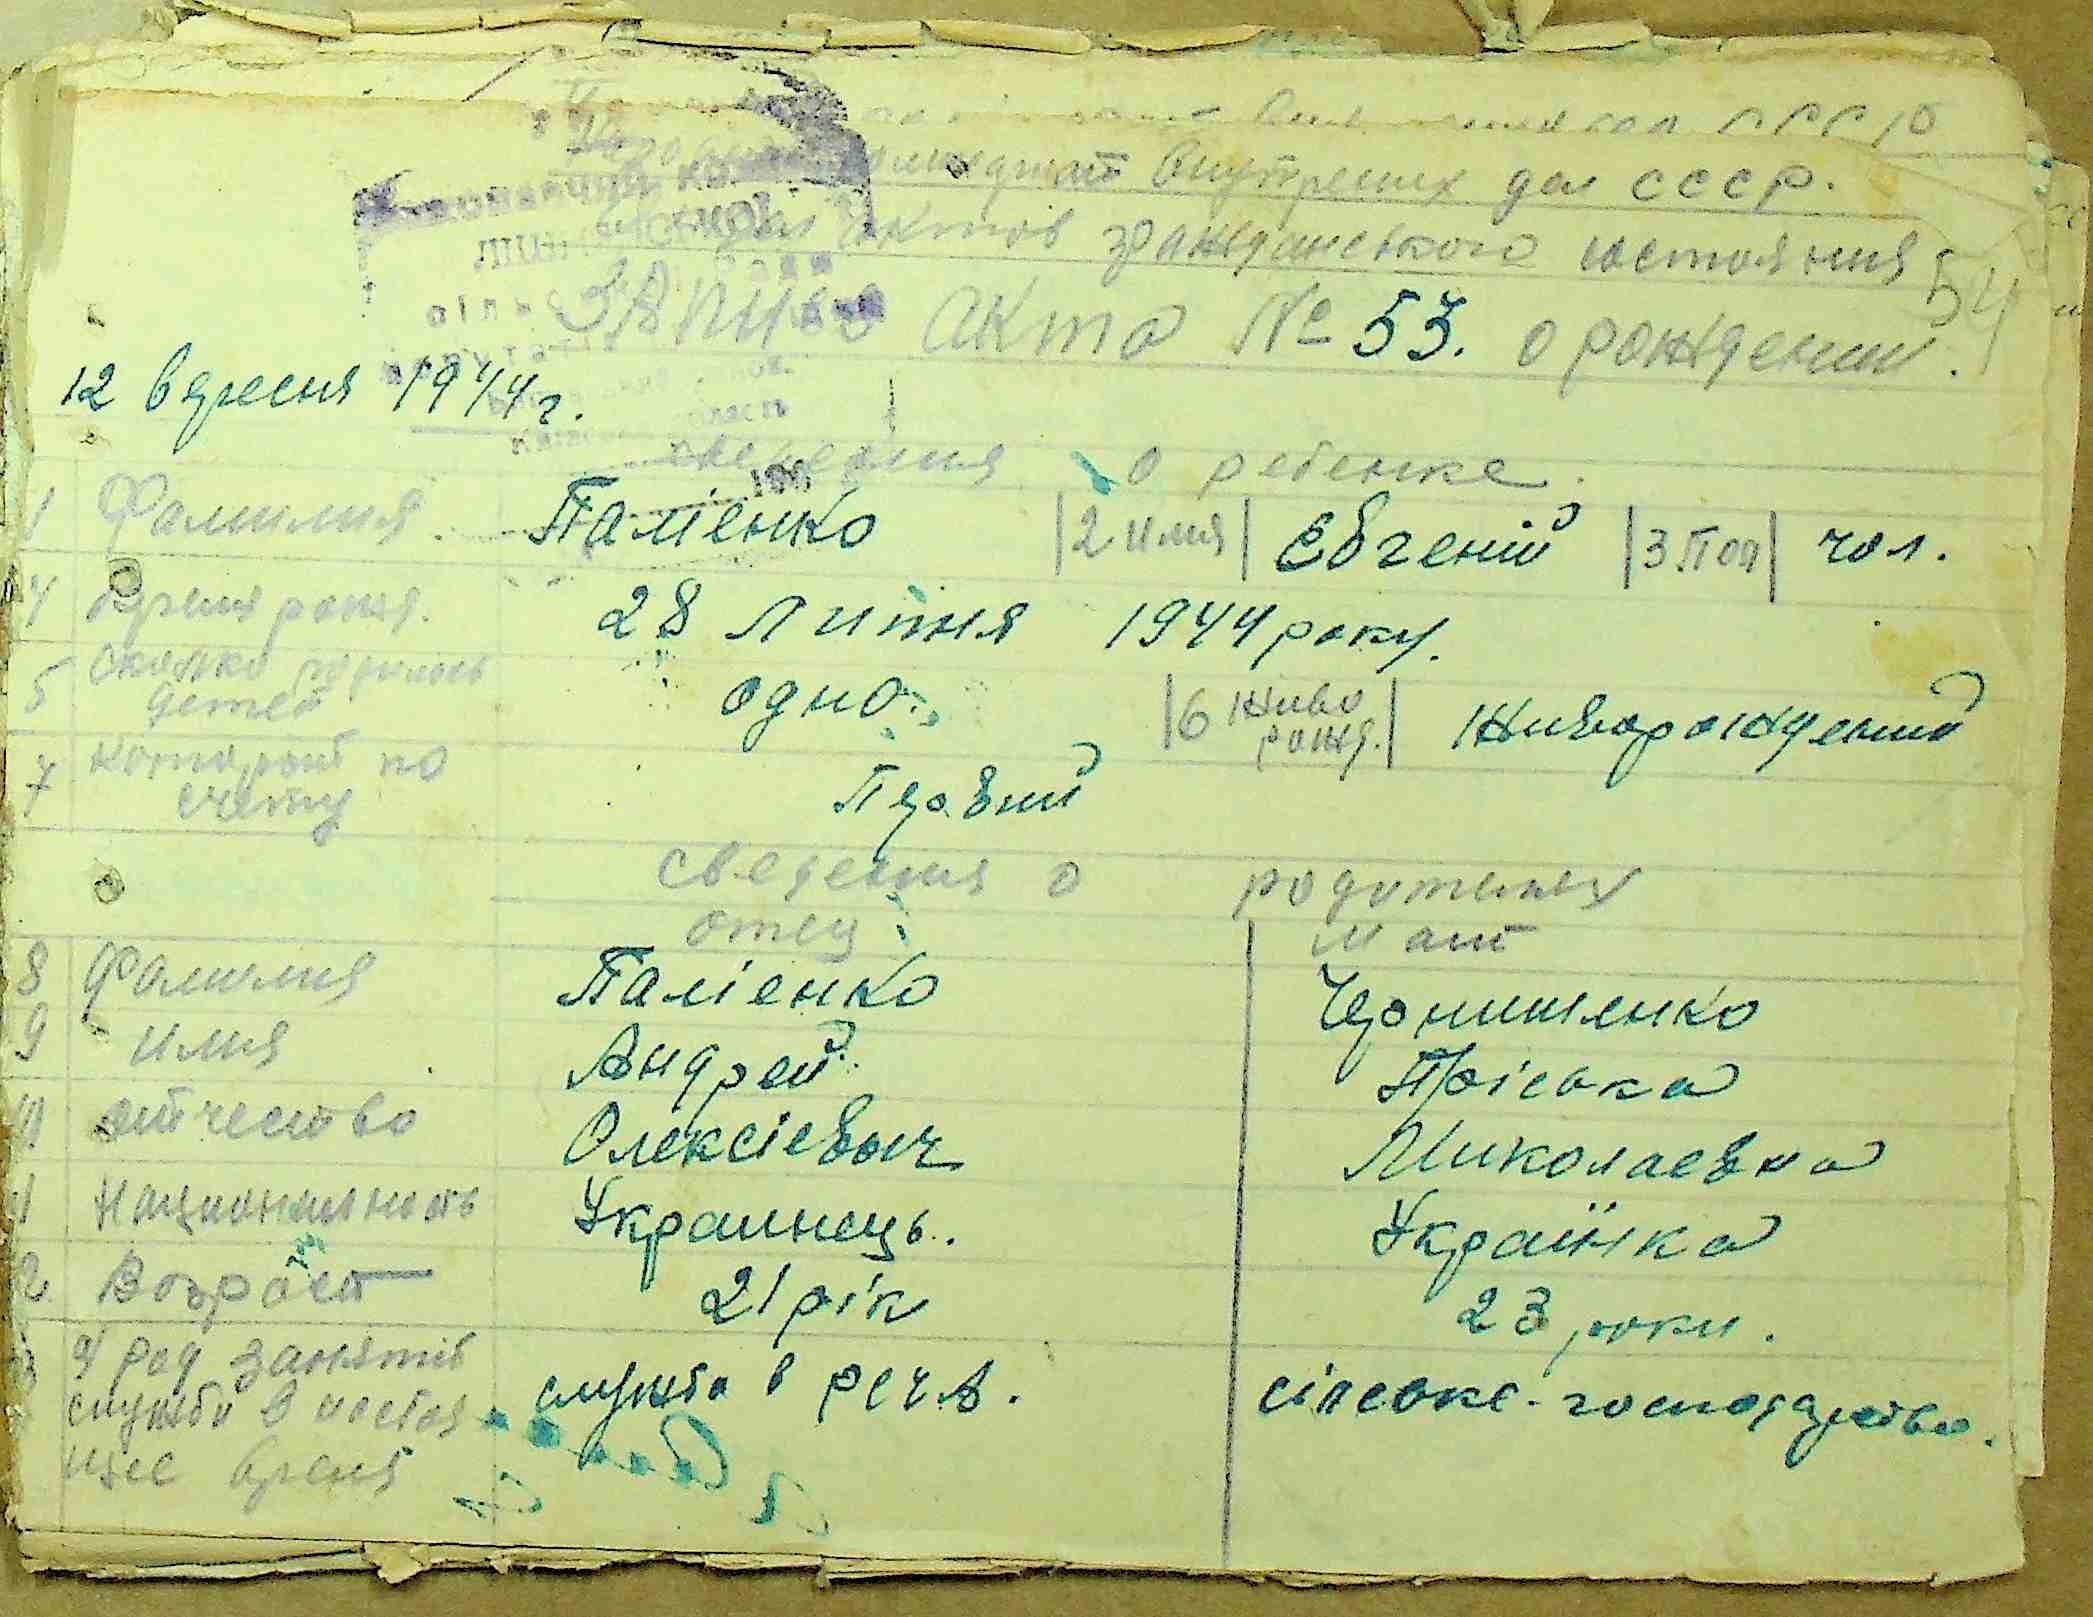 Внутрених дел СССР.
Актов гражданського состояния
54
Запись акта № 53. о рождении.
12 вересня 1944 г.
сведения о ребенке.
1 Фамилия Палієнко 2 имя Евгеній 3 Пол чол.
4 время рожд. 28 липня 1944 року.
5 сколько родилось детей одно. 6 живо рожд. Живорождений
7 который по счету Первий
сведения о родителях
отец мать
8 Фамилия Палієнко Чернишенко
9 имя Андрей Пріська
10 отчество Олексієвич Миколаевна
11 Национальность Украинець. Українка
12 Возраст 21 рік 23 роки.
а) род занятий служби в настоя щее время служба в РСЧА. сільске-господарство.